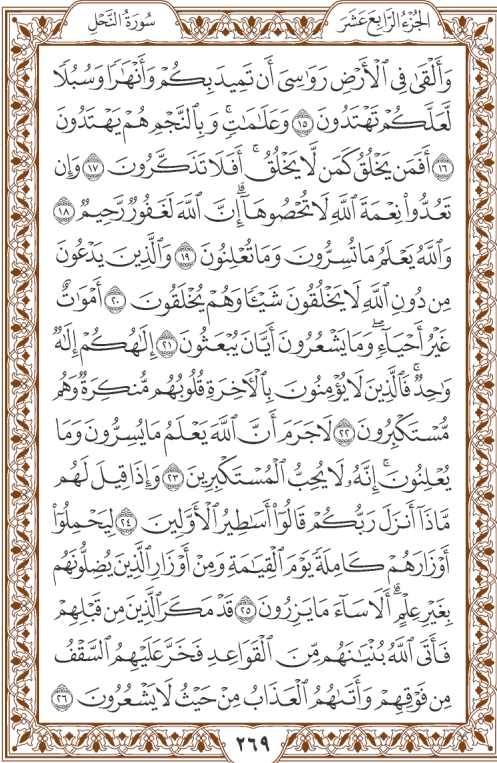 الجزء الرابع عشر
سورة النحل
وَأَلْقَىٰ فِي ٱلْأَرْضِ رَوَٰسِيَ أَن تَمِيدَ بِكُمْ وَأَنْهَٰرًا وَسُبُلًا
لَّعَلَّكُمْ تَهْتَدُونَ ١٥ وَعَلَٰمَٰتٍۚ وَبِٱلنَّجْمِ هُمْ يَهْتَدُونَ
١٦ أَفَمَن يَخْلُقُ كَمَن لَّا يَخْلُقُۚ أَفَلَا تَذَكَّرُونَ ١٧ وَإِن
تَعُدُّوا۟ نِعْمَةَ ٱللَّهِ لَا تُحْصُوهَآۗ إِنَّ ٱللَّهَ لَغَفُورٌ رَّحِيمٌ ١٨
وَٱللَّهُ يَعْلَمُ مَا تُسِرُّونَ وَمَا تُعْلِنُونَ ١٩ وَٱلَّذِينَ يَدْعُونَ
مِن دُونِ ٱللَّهِ لَا يَخْلُقُونَ شَيْـًٔا وَهُمْ يُخْلَقُونَ ٢٠ أَمْوَٰتٌ
غَيْرُ أَحْيَآءٍۖ وَمَا يَشْعُرُونَ أَيَّانَ يُبْعَثُونَ ٢١ إِلَٰهُكُمْ إِلَٰهٌ
وَٰحِدٌۚ فَٱلَّذِينَ لَا يُؤْمِنُونَ بِٱلْـَٔاخِرَةِ قُلُوبُهُم مُّنكِرَةٌ وَهُم
مُّسْتَكْبِرُونَ ٢٢ لَا جَرَمَ أَنَّ ٱللَّهَ يَعْلَمُ مَا يُسِرُّونَ وَمَا
يُعْلِنُونَۚ إِنَّهُۥ لَا يُحِبُّ ٱلْمُسْتَكْبِرِينَ ٢٣ وَإِذَا قِيلَ لَهُم
مَّاذَآ أَنزَلَ رَبُّكُمْ قَالُوٓا۟ أَسَٰطِيرُ ٱلْأَوَّلِينَ ٢٤ لِيَحْمِلُوٓا۟
أَوْزَارَهُمْ كَامِلَةً يَوْمَ ٱلْقِيَٰمَةِ وَمِنْ أَوْزَارِ ٱلَّذِينَ يُضِلُّونَهُم
بِغَيْرِ عِلْمٍۗ أَلَا سَآءَ مَا يَزِرُونَ ٢٥ قَدْ مَكَرَ ٱلَّذِينَ مِن قَبْلِهِمْ
فَأَتَى ٱللَّهُ بُنْيَٰنَهُم مِّنَ ٱلْقَوَاعِدِ فَخَرَّ عَلَيْهِمُ ٱلسَّقْفُ
مِن فَوْقِهِمْ وَأَتَىٰهُمُ ٱلْعَذَابُ مِنْ حَيْثُ لَا يَشْعُرُونَ ٢٦
٢٦٩